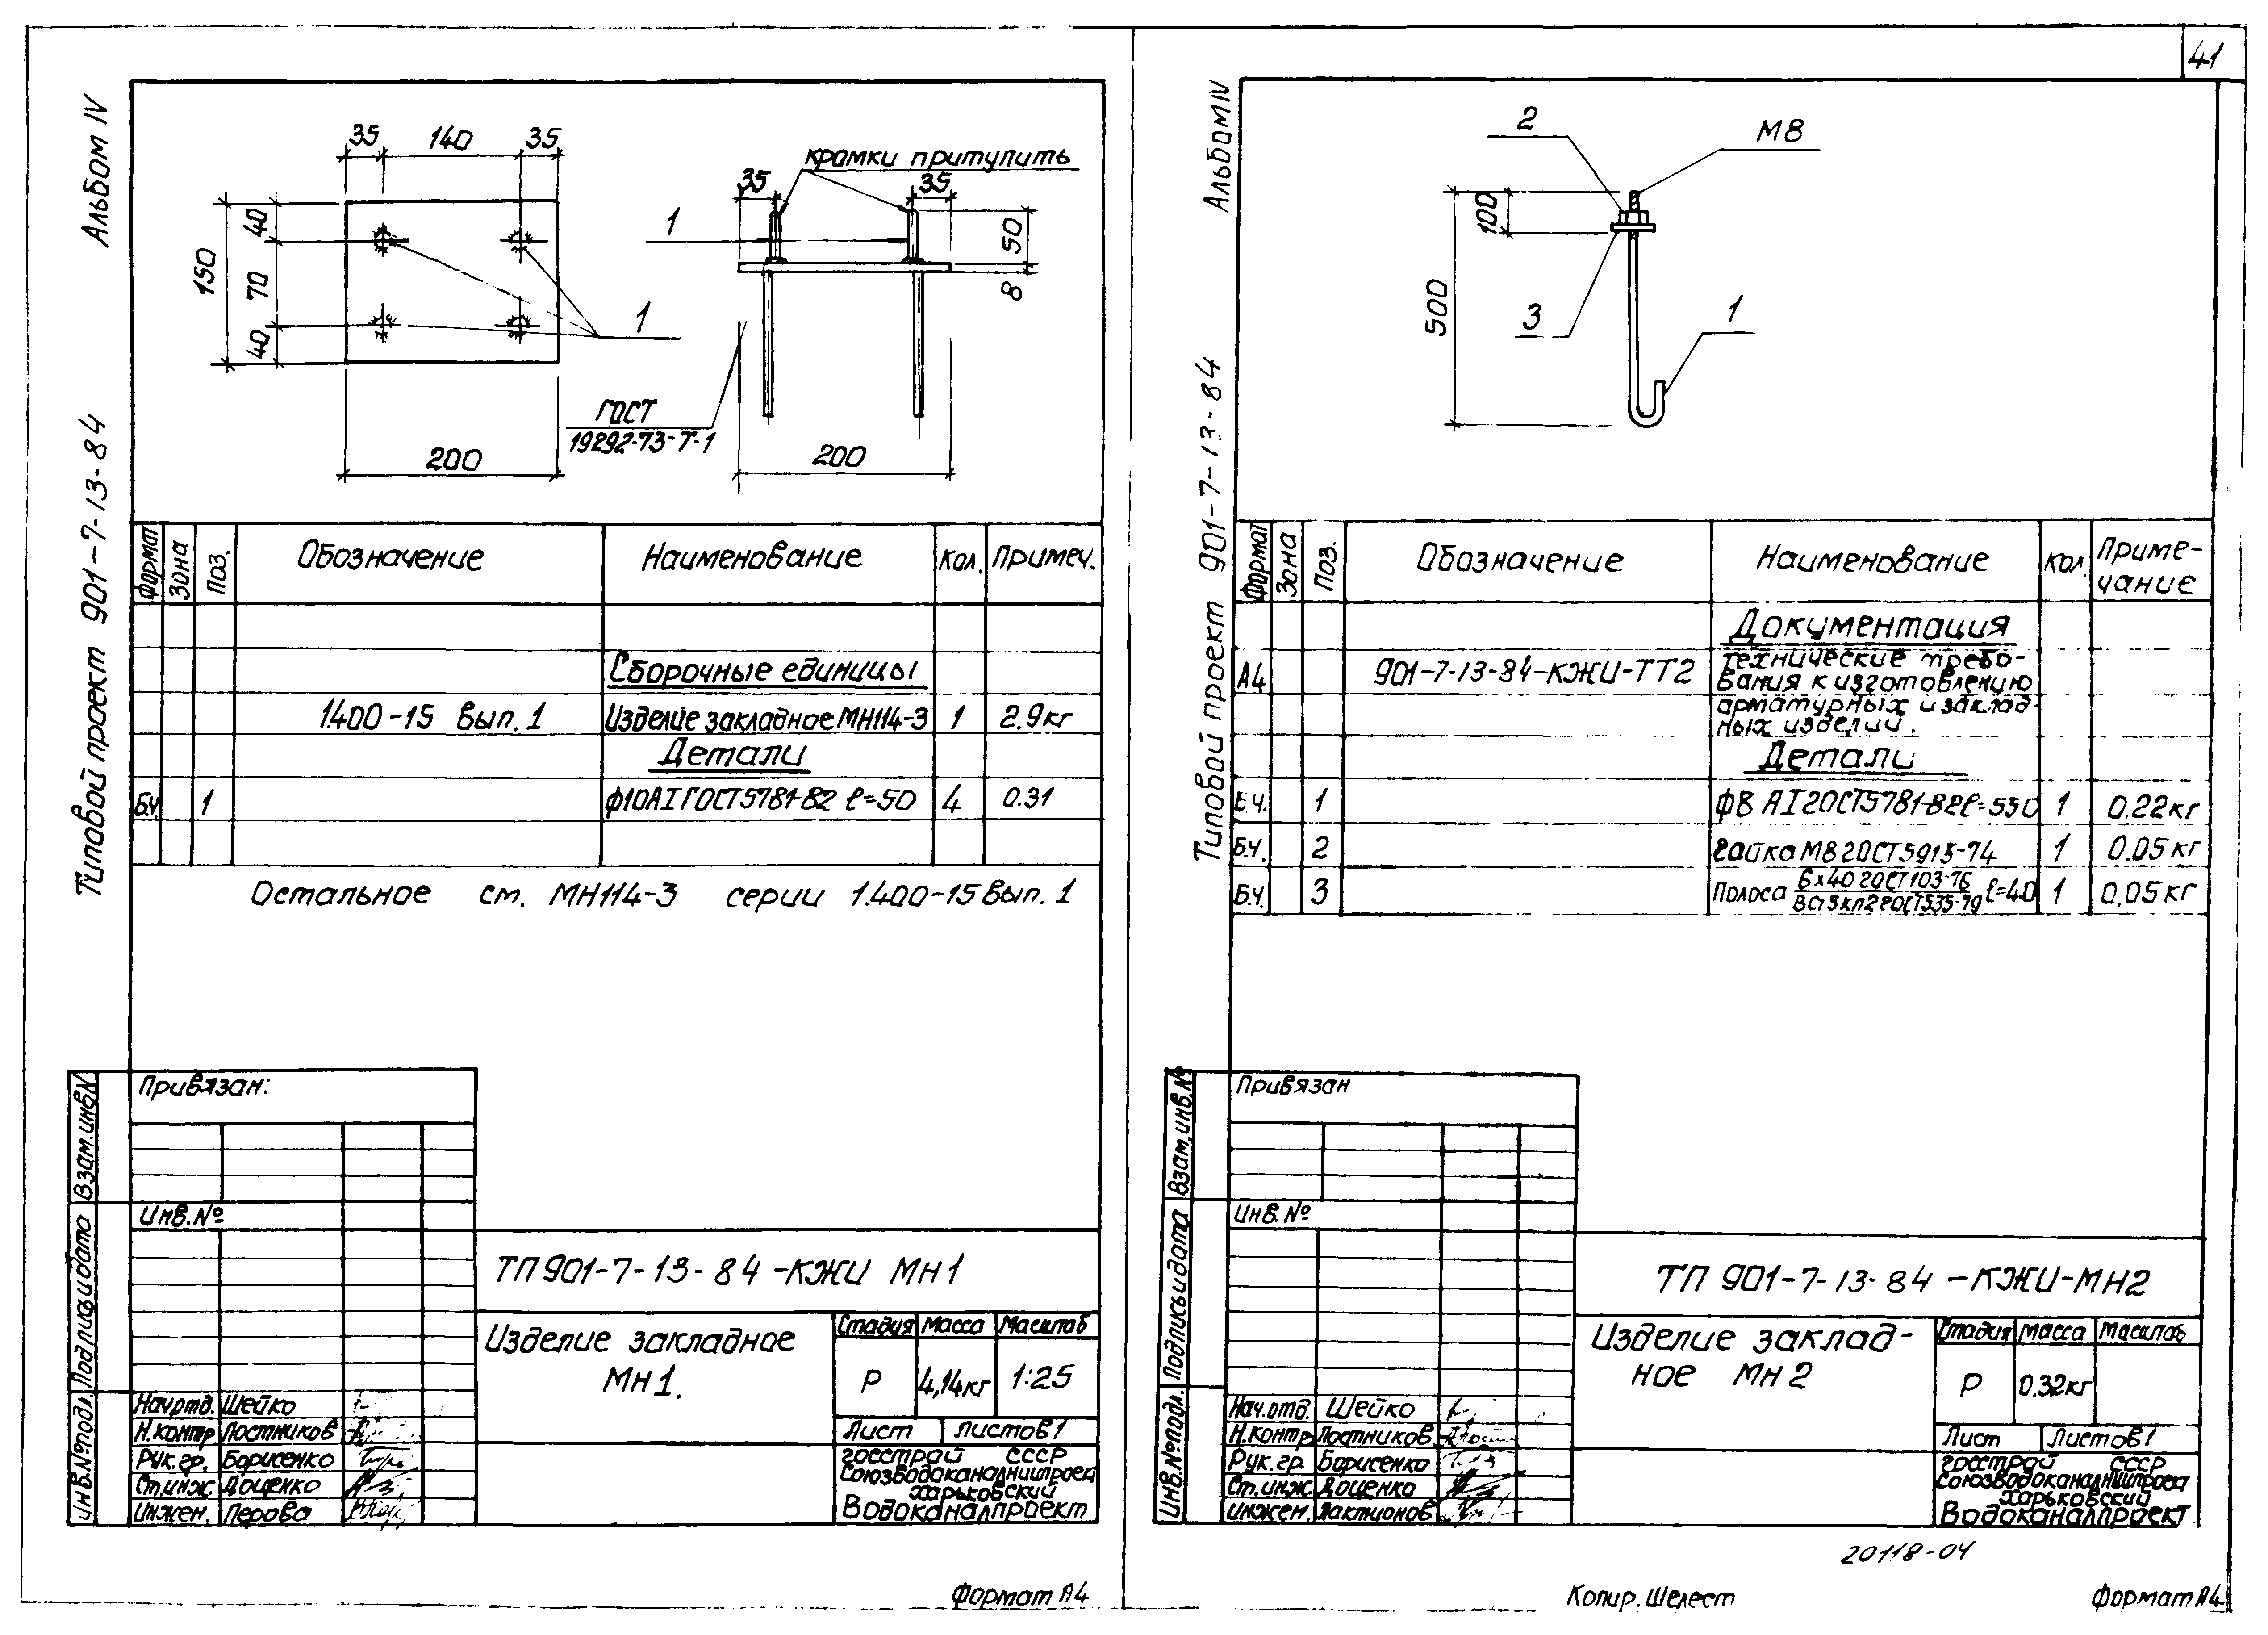 41
Альбом IV
Типовой проект 901-7-13-84
35 140 35
40
150
70
40
200
1
кромки притупить
35 35
1
50
8
ГОСТ
19292-73-Т-1
200
Формат Зона Поз. Обозначение Наименование Кол. Примеч.
Сборочные единицы
1.400-15 Вып. 1 Изделие закладное МН114-3 1 2.9кг
Детали
Б.Ч. 1 ф10АI ГОСТ5781-82 ℓ=50 4 0.31
Остальное см. МН114-3 серии 1.400-15 Вып. 1
Привязан:
Инв.№
Взам.инв.N
Подпись и дата
Инв.№ подл.
ТП 901-7-13-84-КЖИ Мн1
Изделие закладное
Мн1.
Стадия Масса Масштаб
Р 4,14кг 1:25
Лист Листов 1
Госстрой СССР
Союзводоканалниипроект
Харьковский
Водоканалпроект
Нач.отд. Шейко
Н.контр. Постников
Рук.гр. Борисенко
Ст.инж. Доценко
Инжен. Перова
Формат А4
Альбом IV
Типовой проект 901-7-13-84
2
М8
100
500
3
1
Формат Зона Поз. Обозначение Наименование Кол. Приме-
чание
Документация
А4 901-7-13-84-КЖИ-ТТ2 Технические требо-
вания к изготовлению
арматурных и заклад-
ных изделий.
Детали
Б.Ч. 1 ф8 АI ГОСТ5781-82 ℓ=550 1 0.22кг
Б.Ч. 2 Гайка М8 ГОСТ5915-74 1 0.05кг
Б.Ч. 3 Полоса 6х40 ГОСТ103-76 ℓ=40 1 0.05кг
ВСт3кп2 ГОСТ535-79
Привязан
Инв.№
Взам.инв.№
Подпись и дата
Инв.№ подл.
ТП 901-7-13-84-КЖИ-МН2
Изделие заклад-
ное Мн2
Стадия Масса Масштаб
Р 0.32кг
Лист Листов 1
Госстрой СССР
Союзводоканалниипроект
Харьковский
Водоканалпроект
Нач.отд. Шейко
Н.контр Постников
Рук.гр. Борисенко
Ст.инж. Доценко
Инжен. Лактионов
20118-04
Копир. Шелест
Формат А4